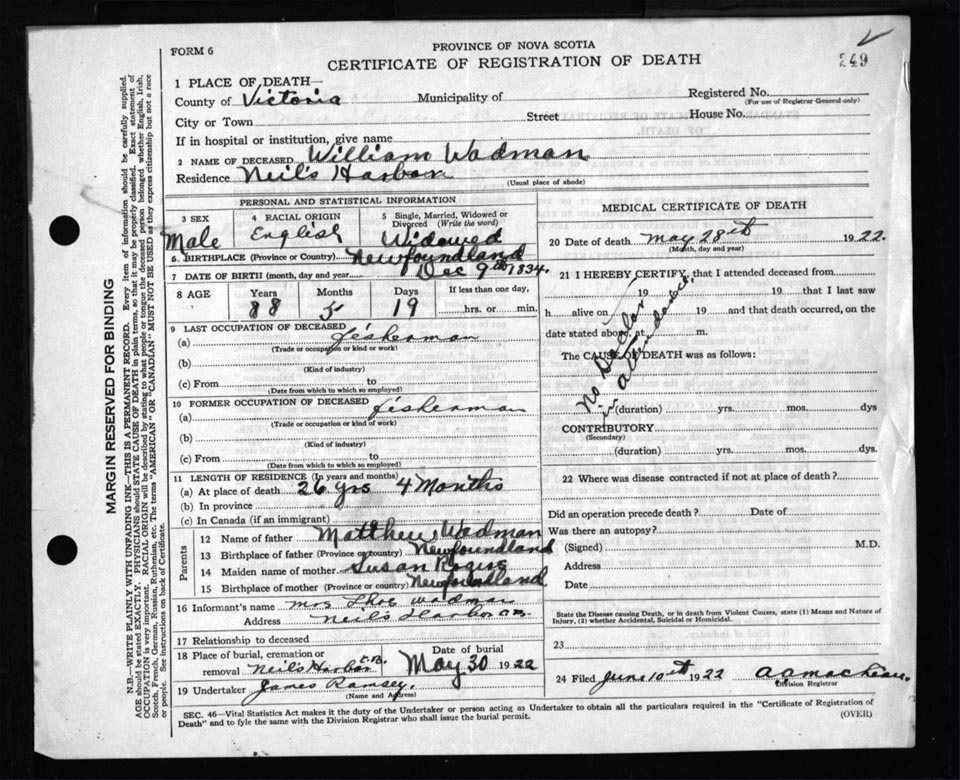 FORM 6
PROVINCE OF NOVA SCOTIA
CERTIFICATE OF REGISTRATION OF DEATH
249
1 PLACE OF DEATH—
County of Victoria Municipality of Registered No.
(For use of Registrar General only)
City or Town Street House No.
If in hospital or institution, give name
2 NAME OF DECEASED William Wadman
Residence Neil's Harbor
(Usual place of abode)
PERSONAL AND STATISTICAL INFORMATION
3 SEX
Male
4 RACIAL ORIGIN
English
5 Single, Married, Widowed or Divorced (Write the word)
Widowed
6 BIRTHPLACE (Province or Country) Newfoundland
7 DATE OF BIRTH (month, day and year) Dec 9th 1834.
8 AGE Years Months Days If less than one day,
88 5 19 hrs. or min.
9 LAST OCCUPATION OF DECEASED
(a) fisherman
(Trade or occupation or kind of work)
(b)
(Kind of industry)
(c) From to
(Date from which to which so employed)
10 FORMER OCCUPATION OF DECEASED
(a) fisherman
(Trade or occupation or kind of work)
(b)
(Kind of industry)
(c) From to
(Date from which to which so employed)
11 LENGTH OF RESIDENCE (In years and months)
(a) At place of death 26 yrs 4 Months
(b) In province
(c) In Canada (if an immigrant)
Parents
12 Name of father Matthew Wadman
13 Birthplace of father (Province or country) Newfoundland
14 Maiden name of mother Susan
15 Birthplace of mother (Province or country) Newfoundland
16 Informant's name Mrs Thos Wadman
Address Neil's Harbor
17 Relationship to deceased
18 Place of burial, cremation or removal Neils Harbor C.B.
Date of burial
May 30 1922
19 Undertaker James Ramsey.
(Name and Address)
MEDICAL CERTIFICATE OF DEATH
20 Date of death May 28th 1922.
(Month, day and year)
21 I HEREBY CERTIFY, that I attended deceased from
19 to 19 that I last saw
h alive on 19 and that death occurred, on the
date stated above, at m.
The CAUSE OF DEATH was as follows:
No Doctor
in attendance
(duration) yrs. mos. dys
CONTRIBUTORY
(Secondary)
(duration) yrs. mos. dys.
22 Where was disease contracted if not at place of death?
Did an operation precede death? Date of
Was there an autopsy?
(Signed) M.D.
Address
Date
State the Disease causing Death, or in death from Violent Causes, state (1) Means and Nature of
Injury, (2) whether Accidental, Suicidal or Homicidal.
23
24 Filed June 10th 1922
Division Registrar
SEC. 46—Vital Statistics Act makes it the duty of the Undertaker or person acting as Undertaker to obtain all the particulars required in the "Certificate of Registration of
Death" and to fyle the same with the Division Registrar who shall issue the burial permit.
(OVER)
MARGIN RESERVED FOR BINDING
N.B.—WRITE PLAINLY WITH UNFADING INK—THIS IS A PERMANENT RECORD. Every item of information should be carefully supplied.
AGE should be stated EXACTLY. PHYSICIANS should STATE CAUSE OF DEATH in plain terms, so that it may be properly classified. Exact statement of
OCCUPATION is very important. RACIAL ORIGIN will be described by stating to what people or tongue the deceased person belonged whether English, Irish,
Scotch, French, German, Russian, Ruthenian, etc. The terms "AMERICAN" OR "CANADIAN" MUST NOT BE USED as they express citizenship but not a race
or people. See instructions on back of Certificate.